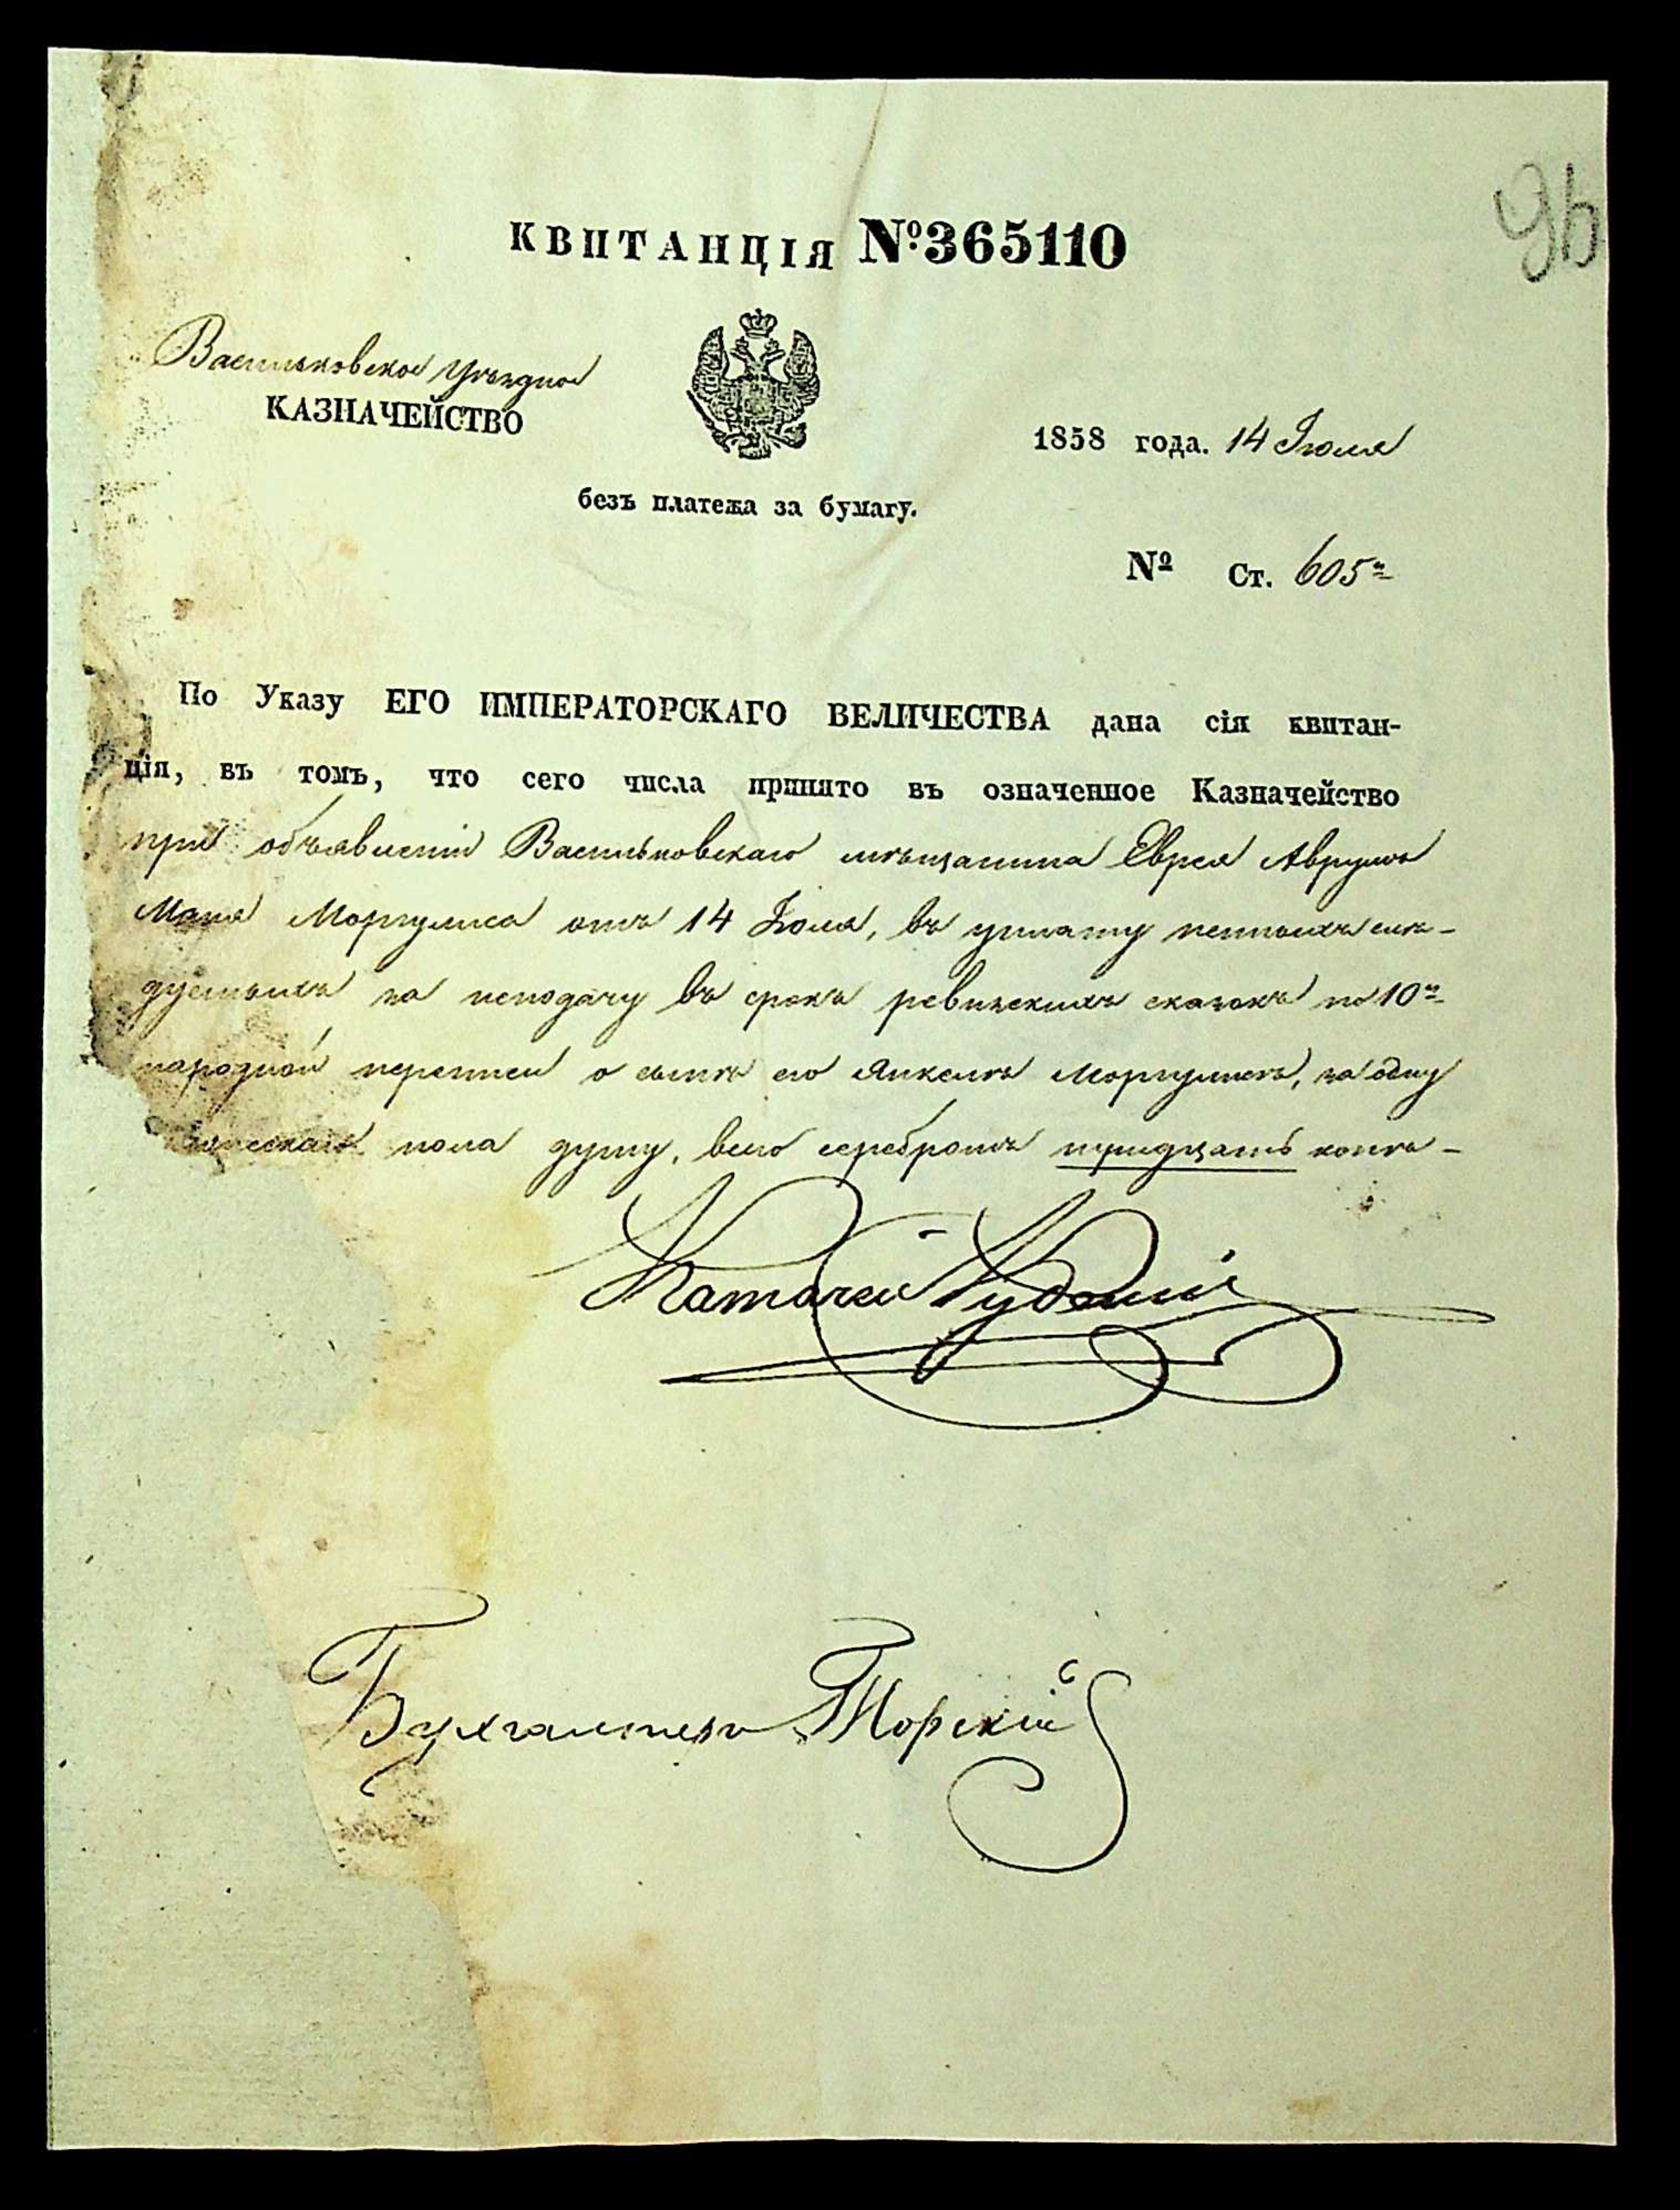 96
КВИТАНЦІЯ №365110
Васильковское Уѣздное
КАЗНАЧЕЙСТВО
1858 года. 14 Іюля
безъ платежа за бумагу.
№ Ст. 605
По Указу ЕГО ИМПЕРАТОРСКАГО ВЕЛИЧЕСТВА дана сія квитан-
ція, въ томъ, что сего числа принято въ означенное Казначейство
при объявленіи Васильковскаго мѣщанина Еврея Аврума
Моргулиса отъ 14 Іюля, въ уплату пенныхъ слѣ-
дуемыхъ за неподачу въ срокъ ревизскихъ сказокъ по 10й
народной переписи о сынѣ его Янкелѣ Моргулисѣ, за одну
мужескаго пола душу, всего серебромъ тридцать копѣ-
Бухгалтеръ Торскій